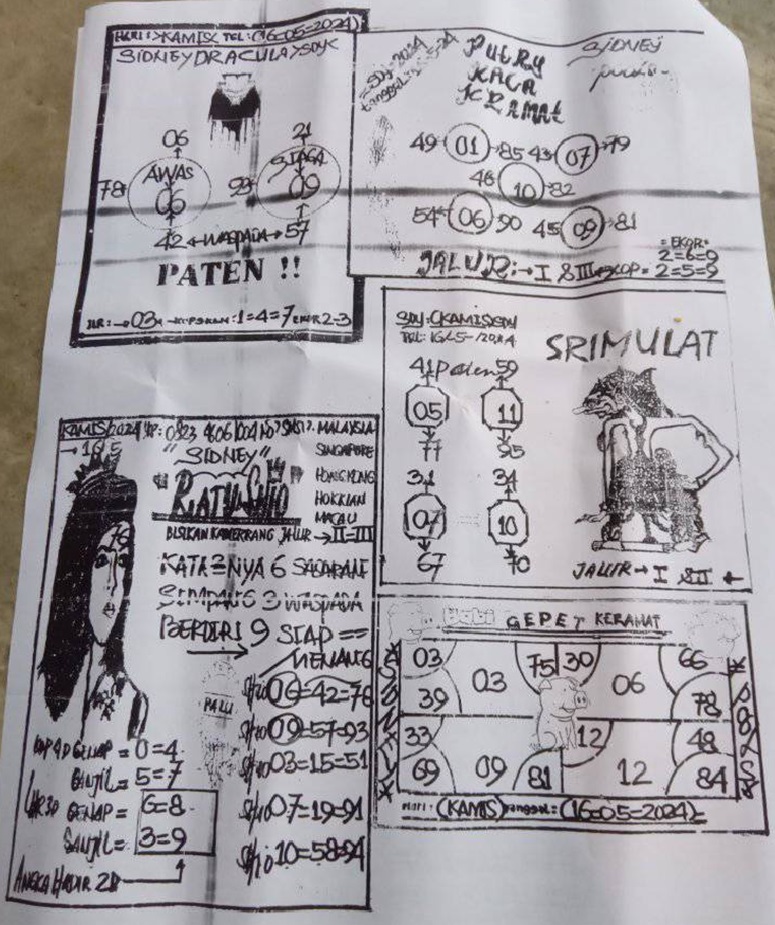 HARI: KAMIS TEL: (16-05-2024)
SIDNEY DRACULA SDY
06
21
AWAS
SIAGA
78
06
93
09
42 ← WASPADA → 57
PATEN !!
JLR: → 03
1=4=7 EKOR 2-3
PUTRY
KACA
KRAMAT
SIDNEY
49 01 85 43 07 79
46 10 82
54 06 90 45 09 81
= EKOR =
2=6=9
JALUR: → I & III → KOP = 2=5=9
SRIMULAT
41 Paten 59
05 11
77 95
31 34
07 10
67 70
JALUR → I & II
KAMIS/2024
MALAYSIA
→ 16 5
"SIDNEY"
SINGAPORE
"RATU SHIO"
HONGKONG
HOKKIAN
MACAU
JALUR → II-III
KATA=NYA 6
SEMPANG 3 WASPADA
BERDIRI 9 SIAP ==
MENANG
PALU
Shio 06=42=78
Shio 09=57=93
Shio 03=15=51
Shio 07=19=91
Shio 10=58=94
KOP 4D GENAP = 0=4
GANJIL = 5=7
GENAP = 6=8
GANJIL = 3=9
ANGKA HADIR 2D
Babi GEPET KERAMAT
03 75 30 66
03 06
39 78
33 12 48
69 09 81 12 84
HARI: (KAMIS) Tanggal = (16=05=2024)=